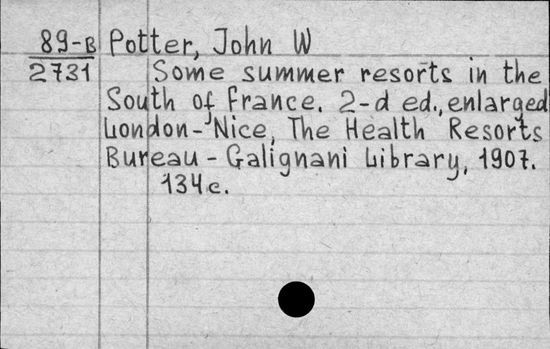 89-в Potter, John W
2731 Some summer resorts in the
South of France. 2-d ed., enlarged
London-Nice, The Health Resorts
Bureau - Galignani Library, 1907.
134 c.